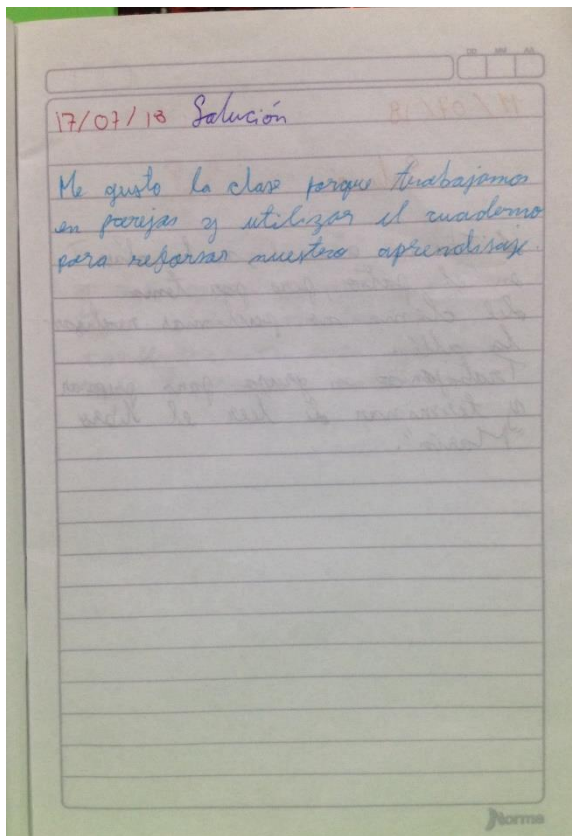 DD MM AA
17/07/18 Solución
Me gusto la clase porque trabajamos
en parejas y utilizar el cuaderno
para reforsar nuestro aprendisaje.
Norma